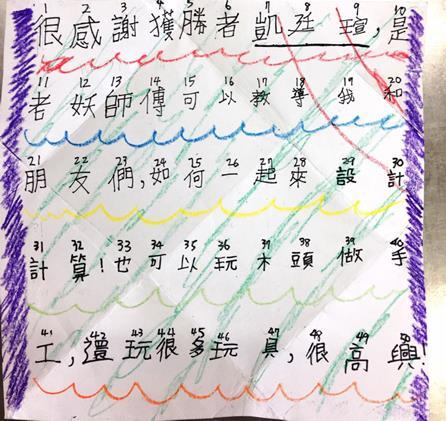 1 2 3 4 5 6 7 8 9 10
很感謝獲勝者凱廷瑄,是
11 12 13 14 15 16 17 18 19 20
老妖師傅可以教導我和
21 22 23 24 25 26 27 28 29 30
朋友們,如何一起來設計
31 32 33 34 35 36 37 38 39 40
計算!也可以玩木頭做手
41 42 43 44 45 46 47 48 49 50
工,還玩很多玩具,很高興!